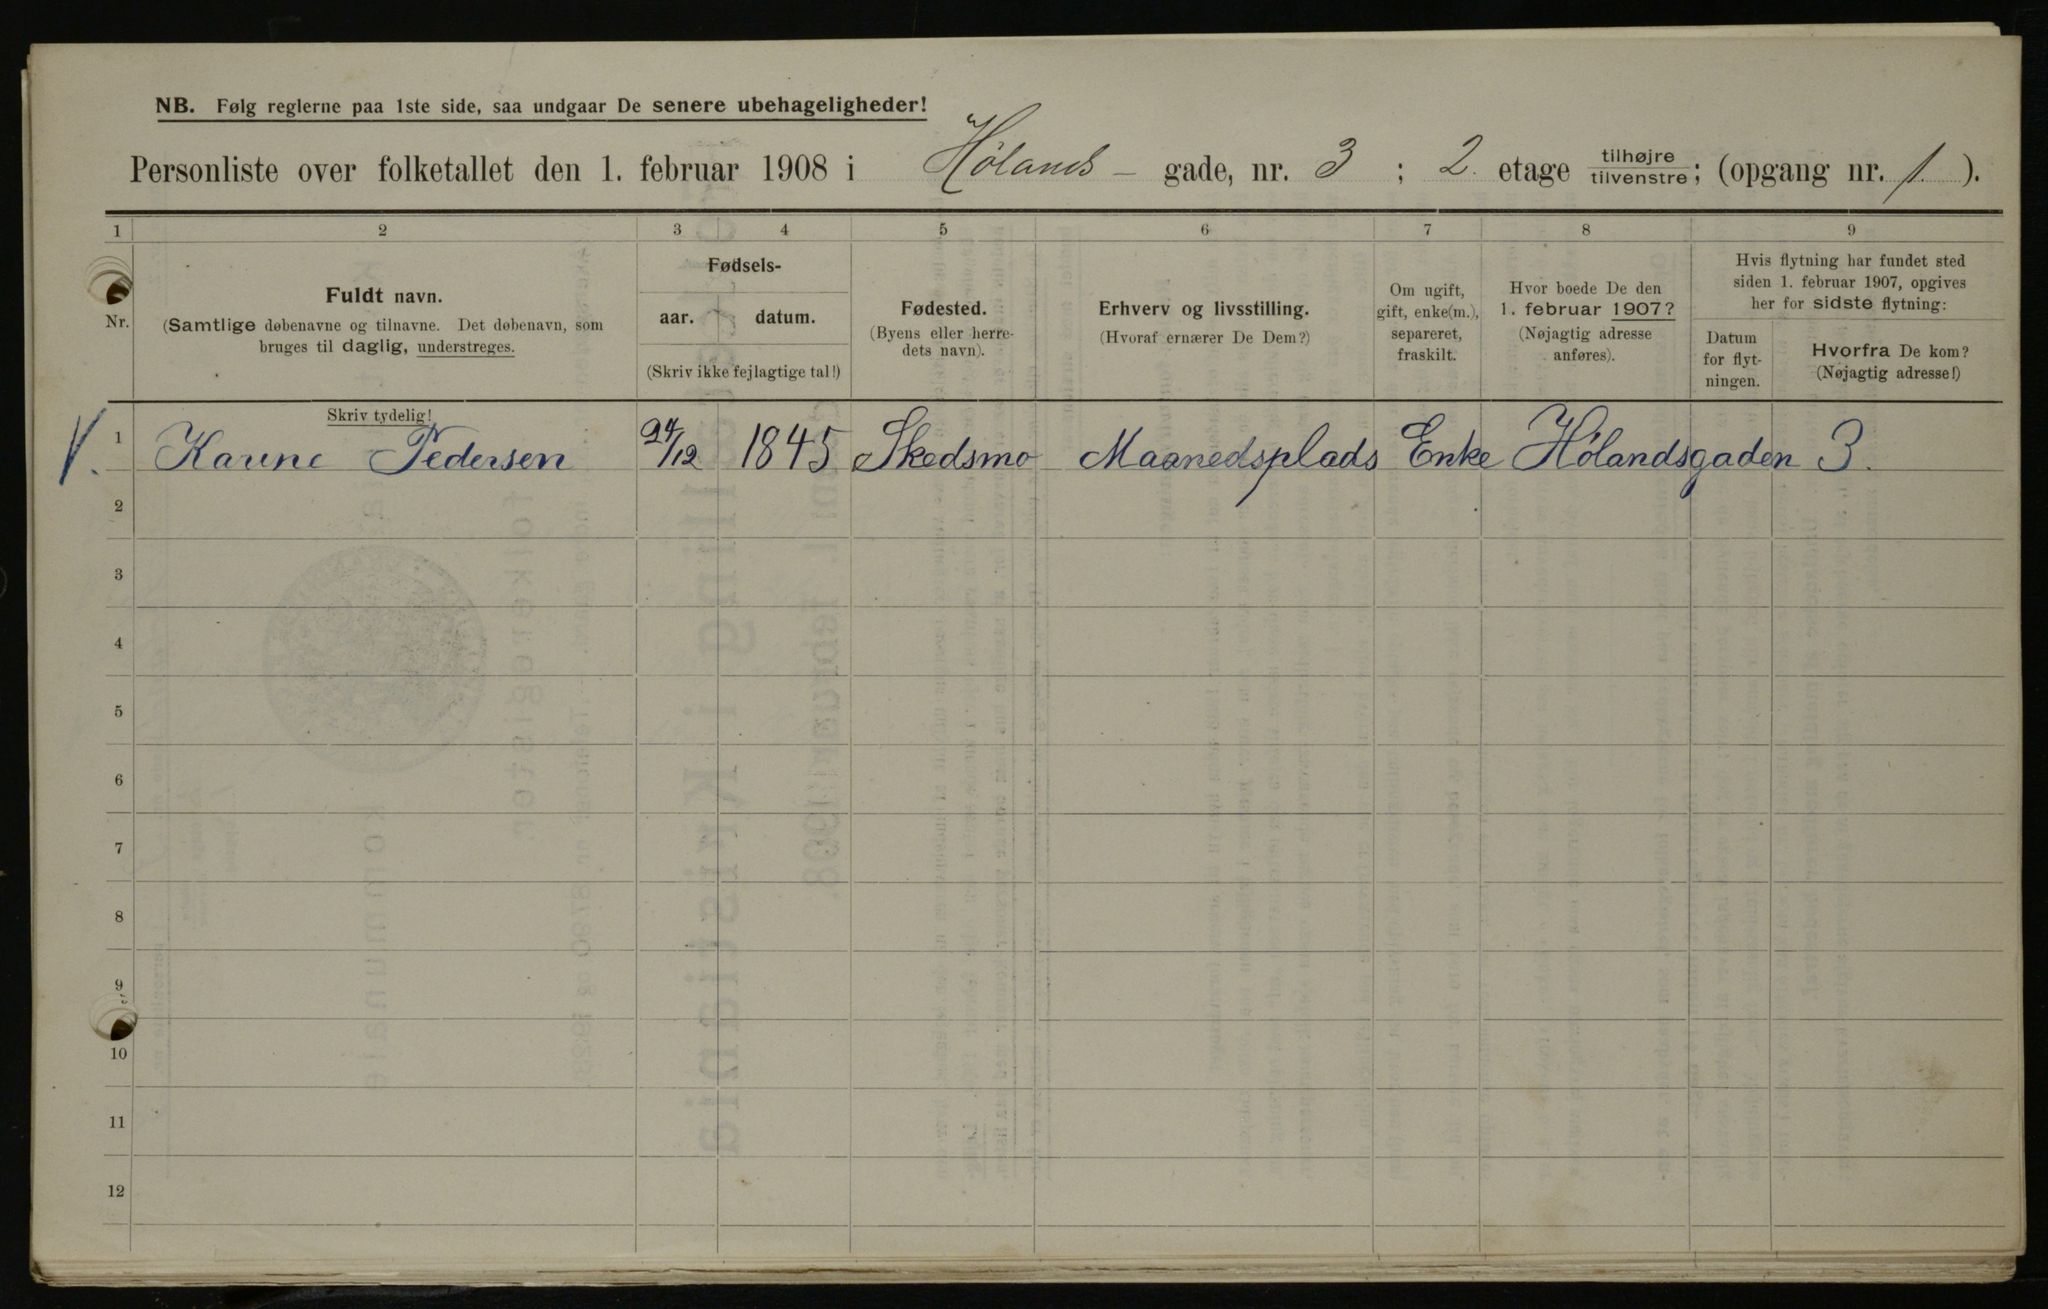 NB. Følg reglerne paa 1ste side, saa undgaar De senere ubehageligheder!
Personliste over folketallet den 1. februar 1908 i Hølands- gade, nr. 3 ; 2. etage tilhøjre tilvenstre ; (opgang nr. 1. ).
1 2 3 4 5 6 7 8 9
Nr.
Fuldt navn.
(Samtlige døbenavne og tilnavne. Det døbenavn, som
bruges til daglig, understreges.
Fødsels-
aar. datum.
(Skriv ikke fejlagtige tal!)
Fødested.
(Byens eller herre-
dets navn).
Erhverv og livsstilling.
(Hvoraf ernærer De Dem?)
Om ugift,
gift, enke(m.),
separeret,
fraskilt.
Hvor boede De den
1. februar 1907?
(Nøjagtig adresse
anføres).
Hvis flytning har fundet sted
siden 1. februar 1907, opgives
her for sidste flytning:
Datum
for flyt-
ningen.
Hvorfra De kom?
(Nøjagtig adresse!)
Skriv tydelig!
V. 1 Karine Pedersen 24/12 1845 Skedsmo Maanedsplads Enke Hølandsgaden 3.
2
3
4
5
6
7
8
9
10
11
12